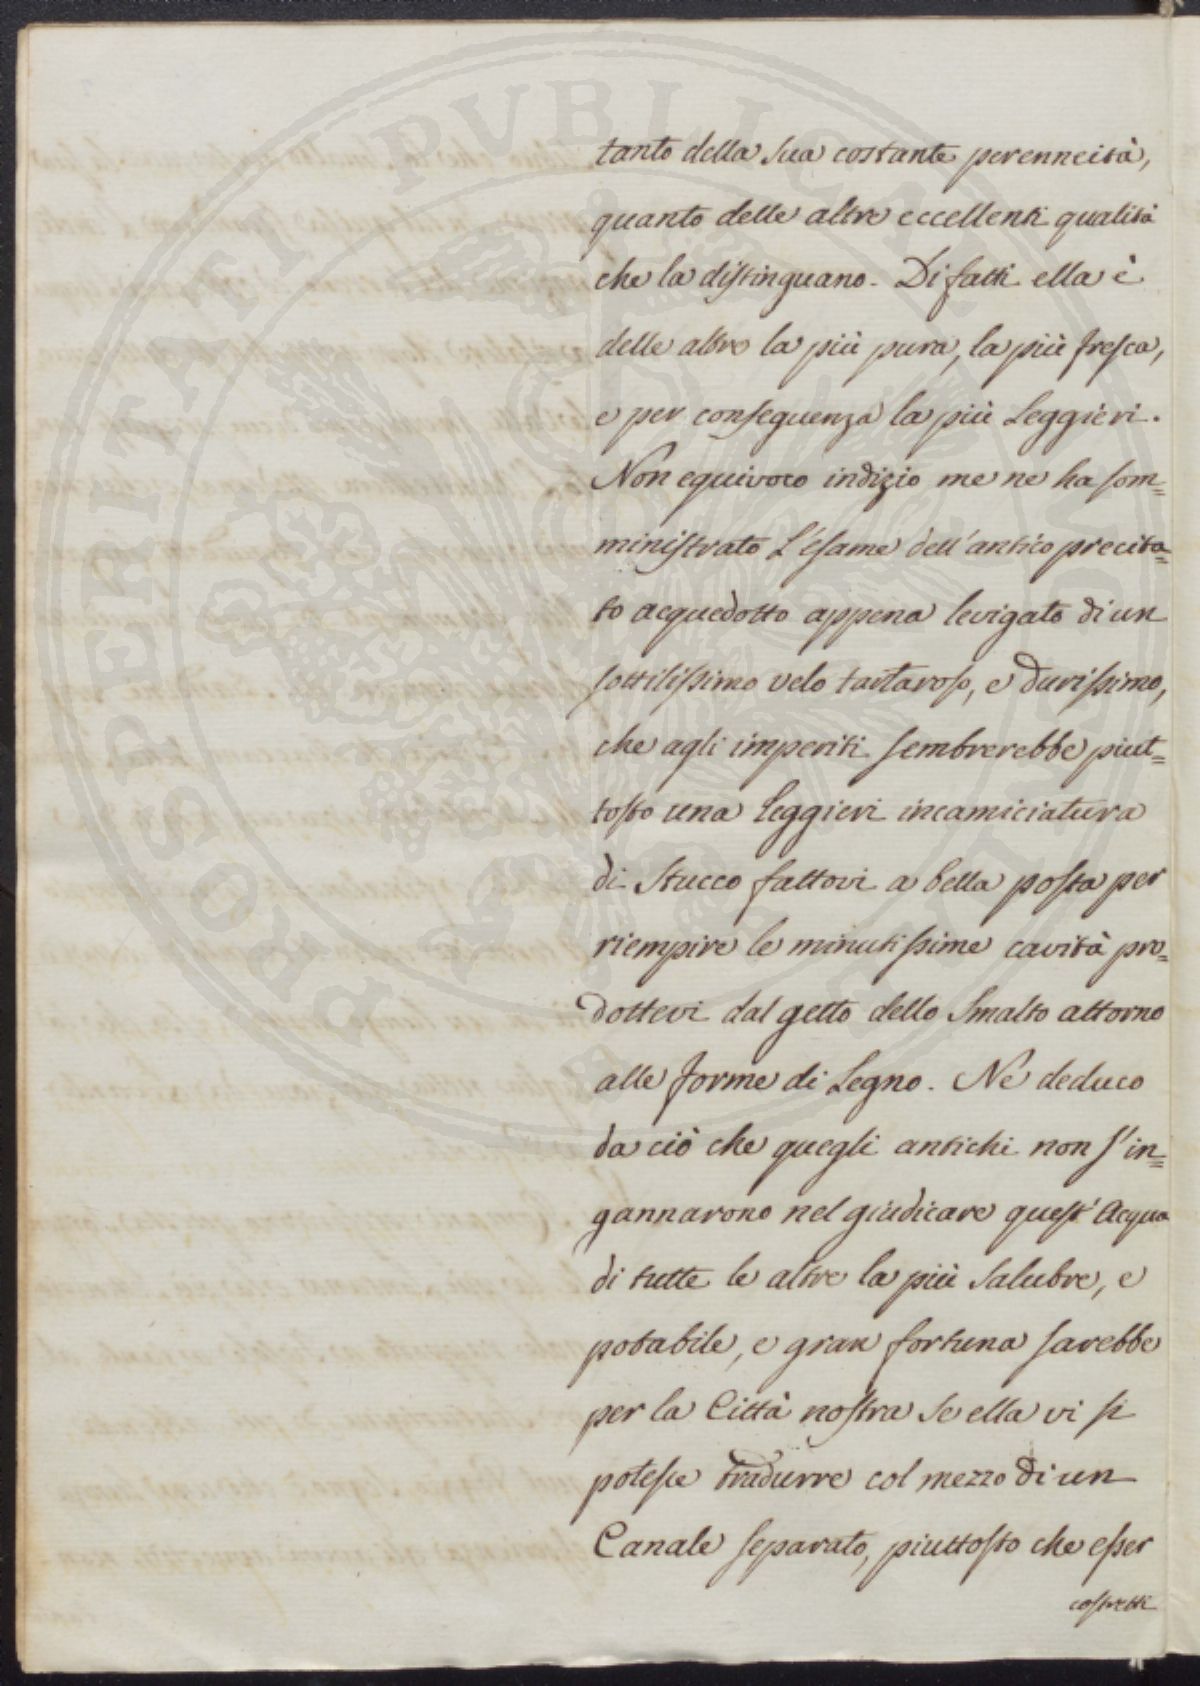 PROSPERITATI PUBLICAE
tanto della sua costante perenneità,
quanto delle altre eccellenti qualità
che la distinguano. Di fatti ella è
delle altre la più pura, la più fresca,
e per conseguenza la più Leggieri.
Non equivoco indizio me ne ha som=
ministrato L'esame dell'antico precita=
to acquedotto appena levigato di un
sottilissimo velo tartaroso, e durissimo,
che agli imperiti sembrerebbe piut=
tosto una Leggieri incamiciatura
di Stucco fattovi a bella posta per
riempire le minutissime cavità pro=
dottevi dal getto dello Smalto attorno
alle forme di Legno. Né deduco
da ciò che quegli antichi non s'in=
gannarono nel giudicare quest'Acqua
di tutte le altre la più salubre, e
potabile, e gran fortuna sarebbe
per la Città nostra se ella vi si
potesse tradurre col mezzo di un
Canale separato, piuttosto che esser
costretti